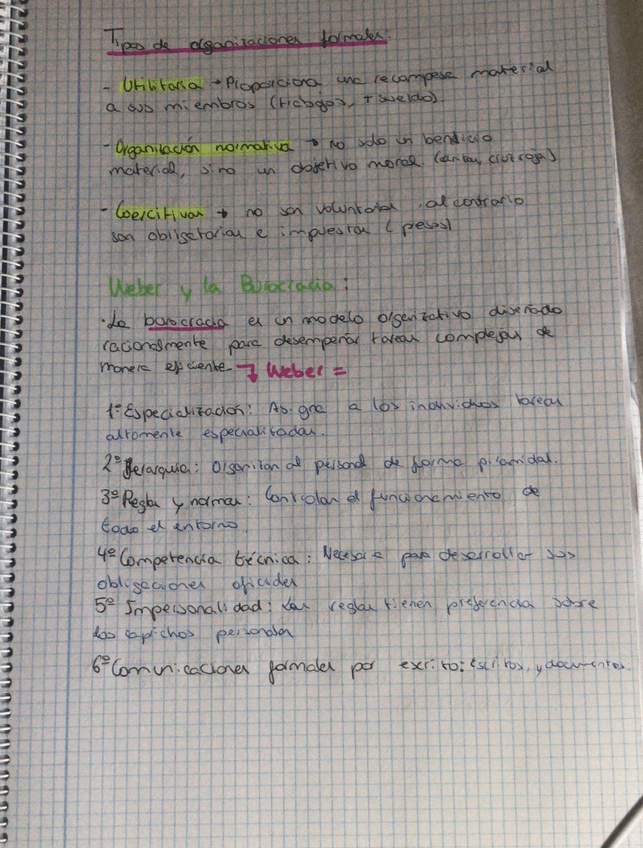 Tipos de organizaciones formales:
- Utilitaria → Proporciona una recompesa material
a sus miembros (trabajos, → sueldo)
- Organización normativa → no solo un beneficio
material, sino un objetivo moral (caritas, cruz roja)
- Coercitivas → no son voluntarias, al contrario
son obligatorias e impuestas (
Weber y la Burocracia:
· La burocracia es un modelo organizativo diseñado
racionalmente para desempeñar tareas complejas de
manera eficiente. → Weber =
1º Especialización: Asigna a los individuos tareas
altamente especializadas.
2º Jerarquía: Organizan al personal de forma piramidal.
3º Reglas y normas: Controlan el funcionamiento de
todo el entorno
4º Competencia técnica: Necesaria para desarrollar sus
obligaciones oficiales
5º Impersonalidad: Las reglas tienen preferencia sobre
los caprichos personales
6º Comunicaciones formales por escrito: escritos, y documentos.